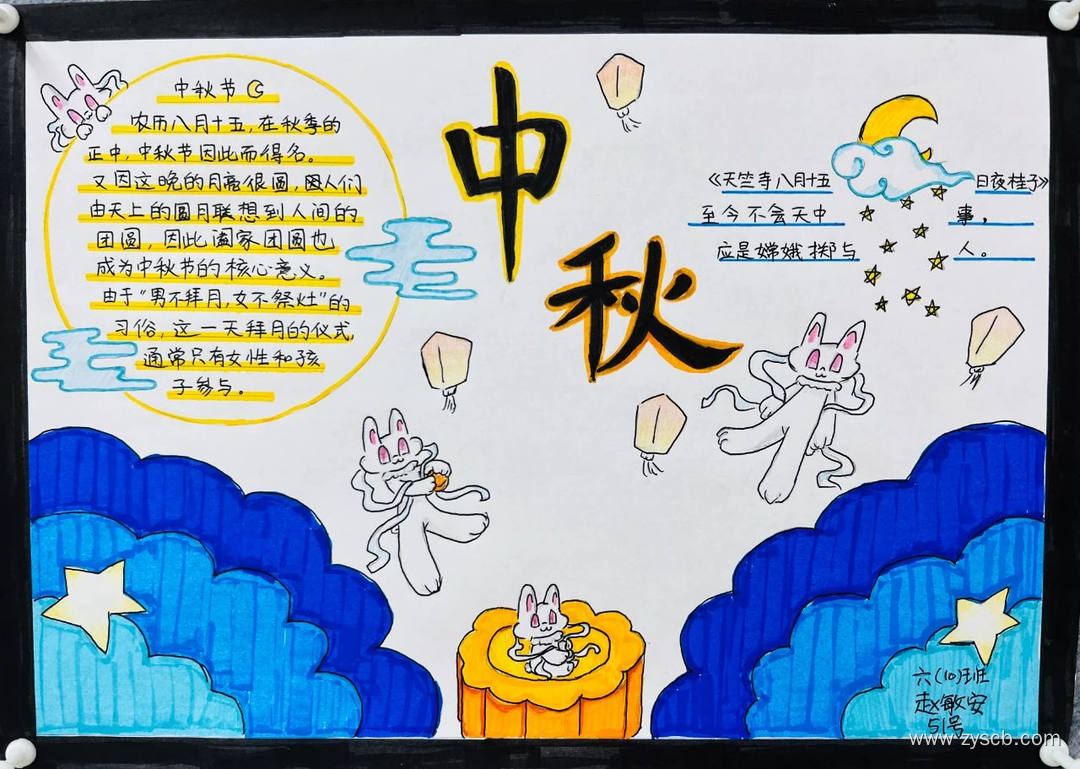 中秋节
农历八月十五,在秋季的
正中,中秋节因此而得名。
又因这晚的月亮很圆,因人们
由天上的圆月联想到人间的
团圆,因此阖家团圆也
成为中秋节的核心意义。
由于“男不拜月,女不祭灶”的
习俗,这一天拜月的仪式,
通常只有女性和孩
子参与。
中
秋
《天竺寺八月十五日夜桂子》
至今不会天中事,
应是嫦娥掷与人。
六(10)班
赵敏安
51号
www.zyscb.com